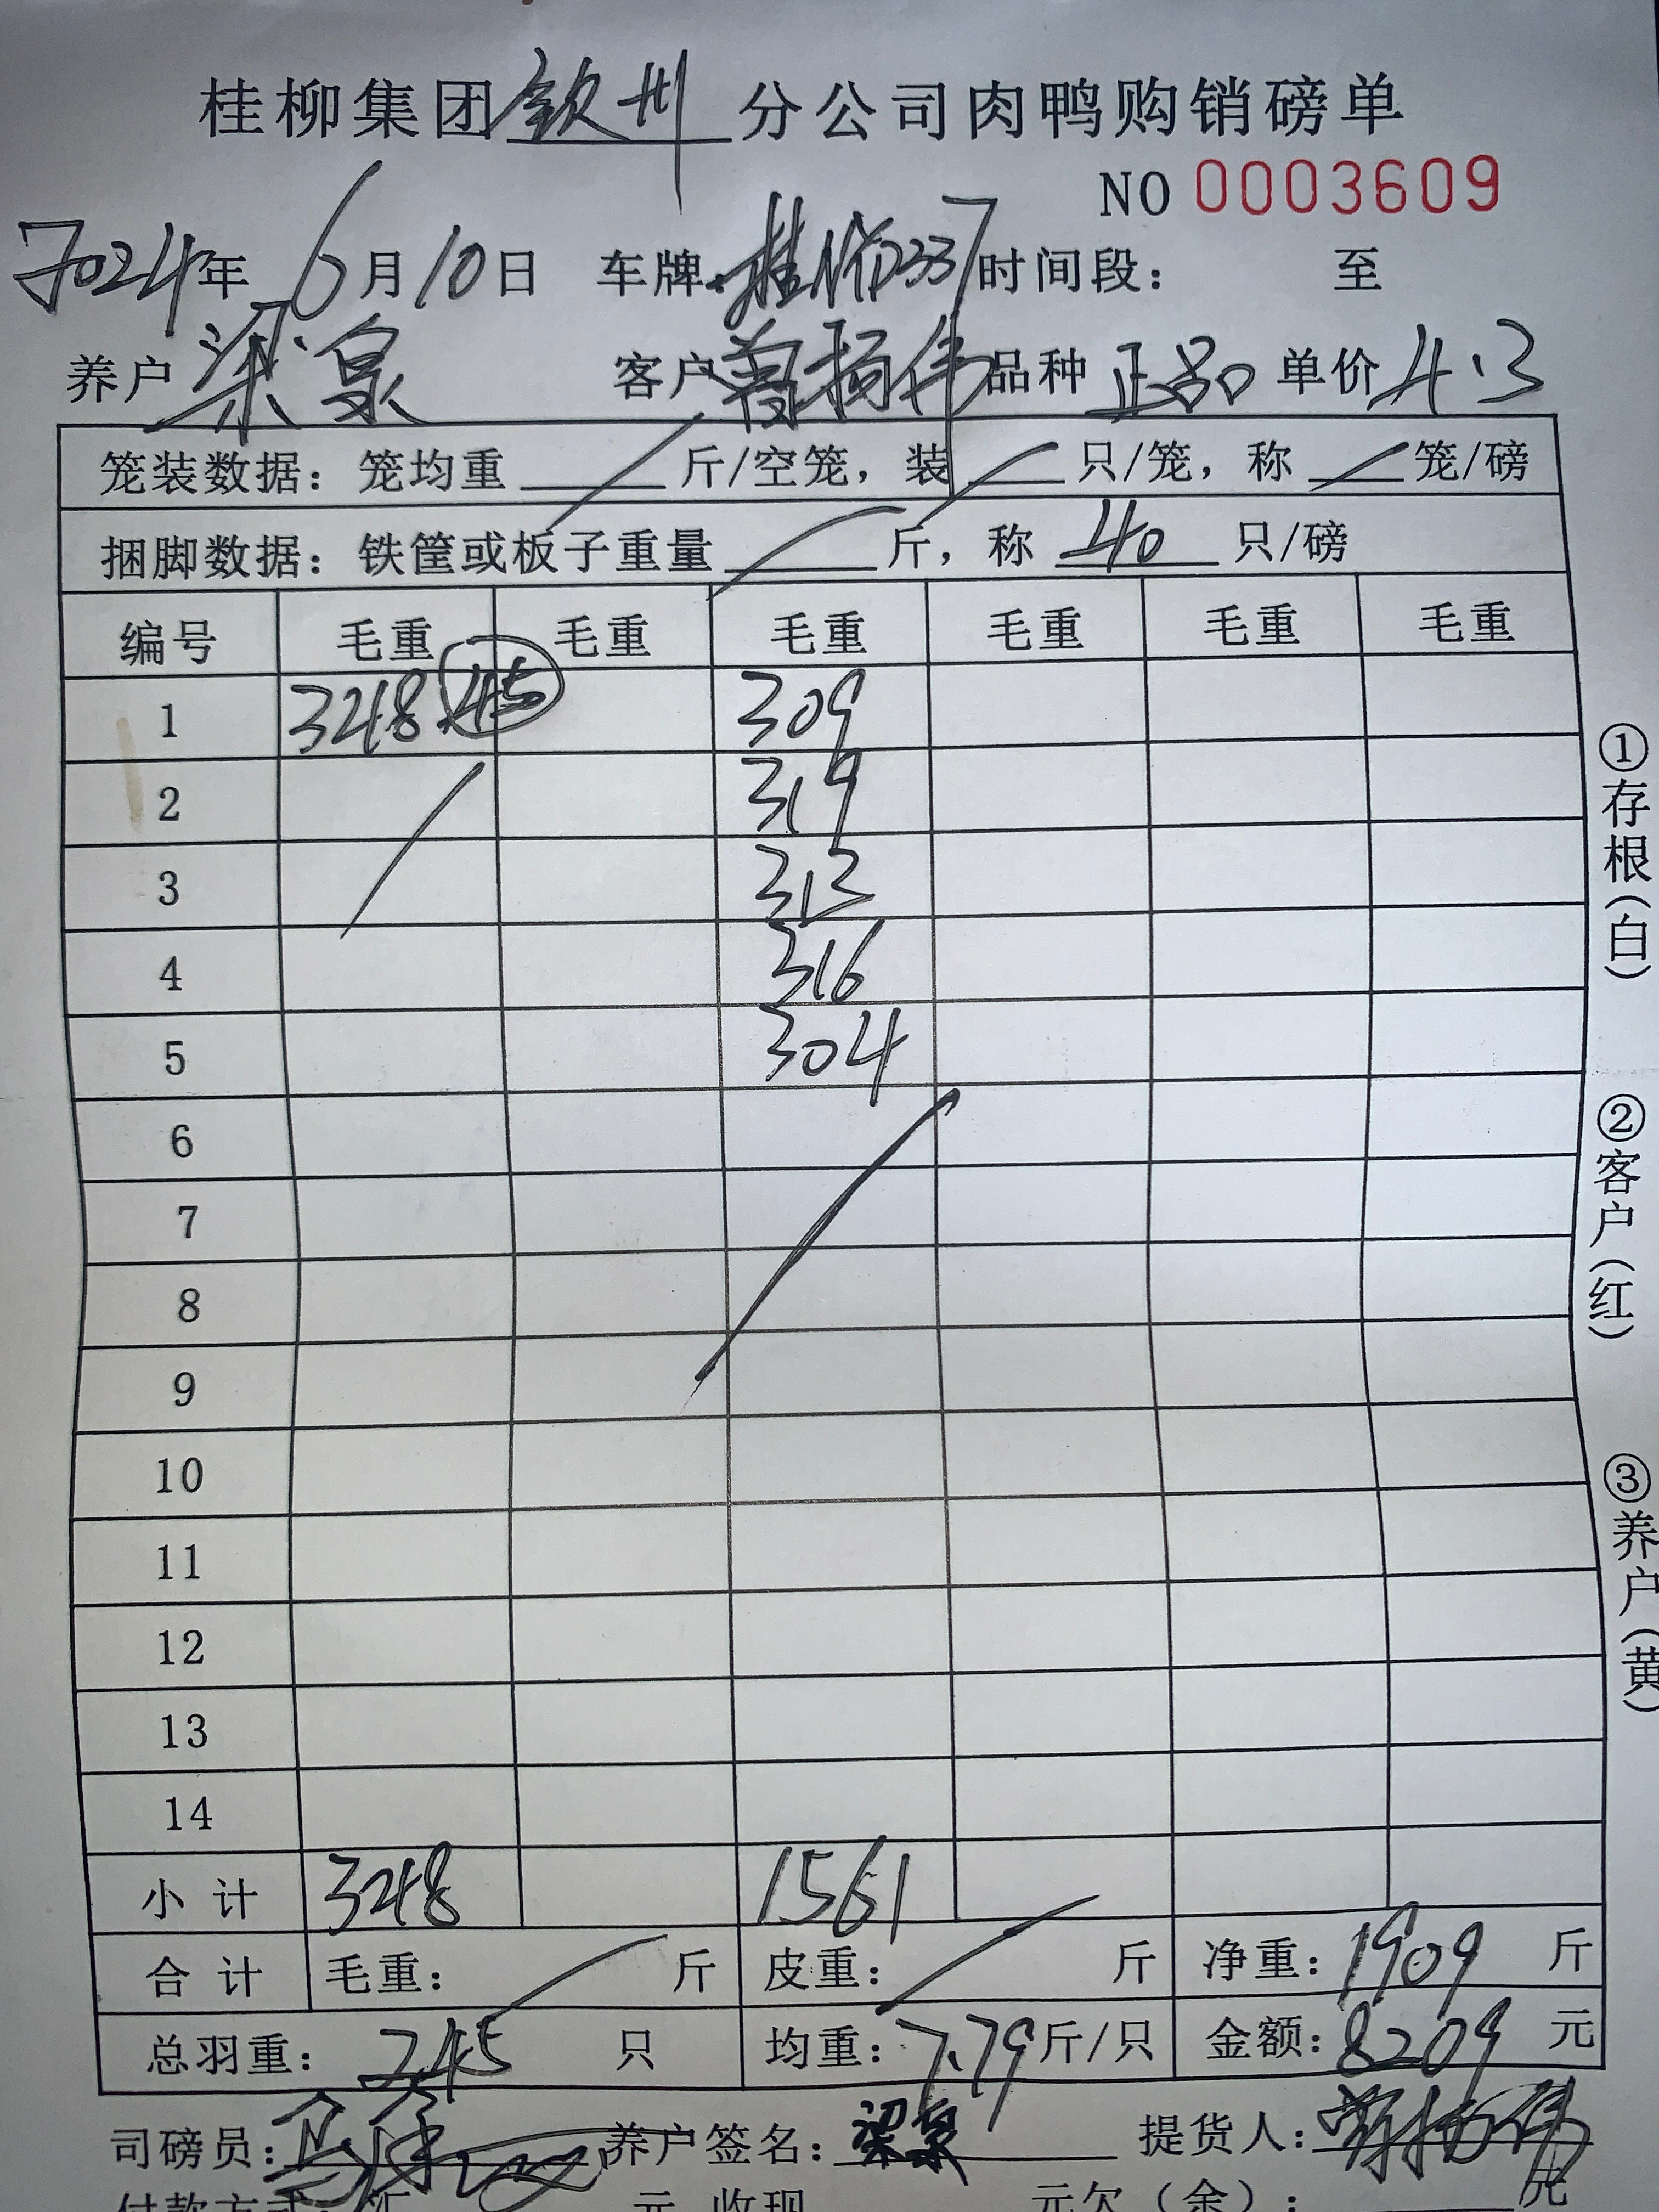 桂柳集团钦州分公司肉鸭购销磅单
NO 0003609
2024年6月10日 车牌: 桂 时间段: 至
养户 梁泉 客户 曾扬伟 品种 正品 单价 4.3
笼装数据: 笼均重 斤/空笼, 装 只/笼, 称 笼/磅
捆脚数据: 铁筐或板子重量 斤, 称 40 只/磅
编号 毛重 毛重 毛重 毛重 毛重 毛重
1 348 45 309
2 319
3 313
4 316
5 304
6
7
8
9
10
11
12
13
14
小计 348 1561
合计 毛重: 斤 皮重: 斤 净重: 1909 斤
总羽重: 245 只 均重: 7.79 斤/只 金额: 8209 元
司磅员: 养户签名: 梁泉 提货人: 曾扬伟
付款方式: 汇 元 收现 元欠(余): 元
①存根(白)
②客户(红)
③养户(黄)